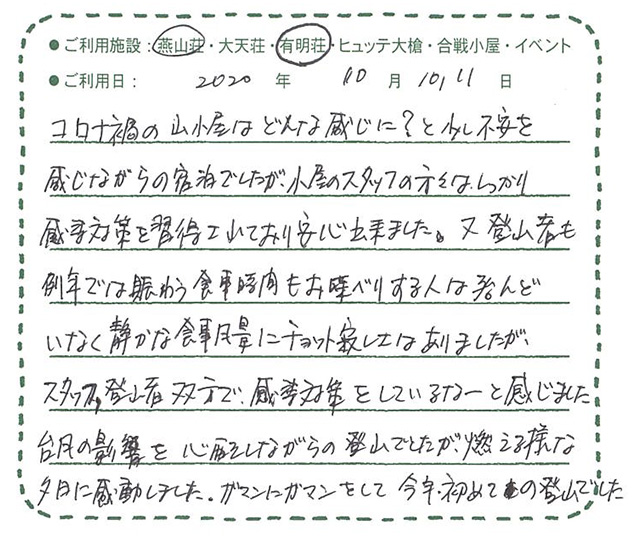 ● ご利用施設：燕山荘・大天荘・有明荘・ヒュッテ大槍・合戦小屋・イベント
● ご利用日： 2020 年 10 月 10,11 日
コロナ禍の山小屋はどんな感じに？と少し不安を
感じながらの宿泊でしたが、小屋のスタッフの方々はしっかり
感染対策を習得されており安心出来ました。又登山者も
例年では賑わう食事時間もお喋べりする人は殆んど
いなく静かな食事風景にチョット寂しさはありましたが、
スタッフ、登山者双方で、感染対策をしているなーと感じました
台風の影響を心配しながらの登山でしたが、燃える様な
夕日に感動しました。ガマンにガマンをして今年初めての登山でした